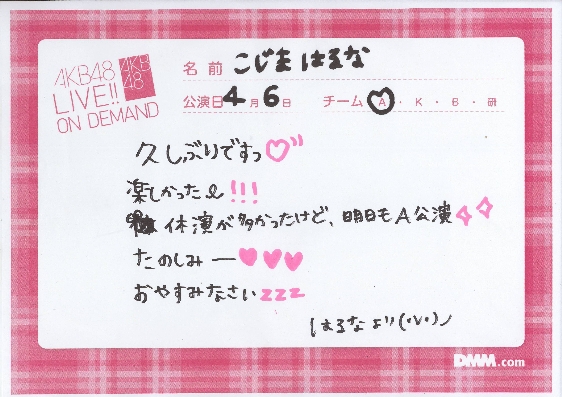 AKB48
LIVE!!
ON DEMAND
AKB
48
名前 こじまはるな
公演日 4月6日 チーム A・K・B・研
久しぶりですっ
楽しかったぁ!!!
休演が多かったけど、明日もA公演
たのしみー
おやすみなさいzzz
はるなより(・v・)ノ
DMM.com